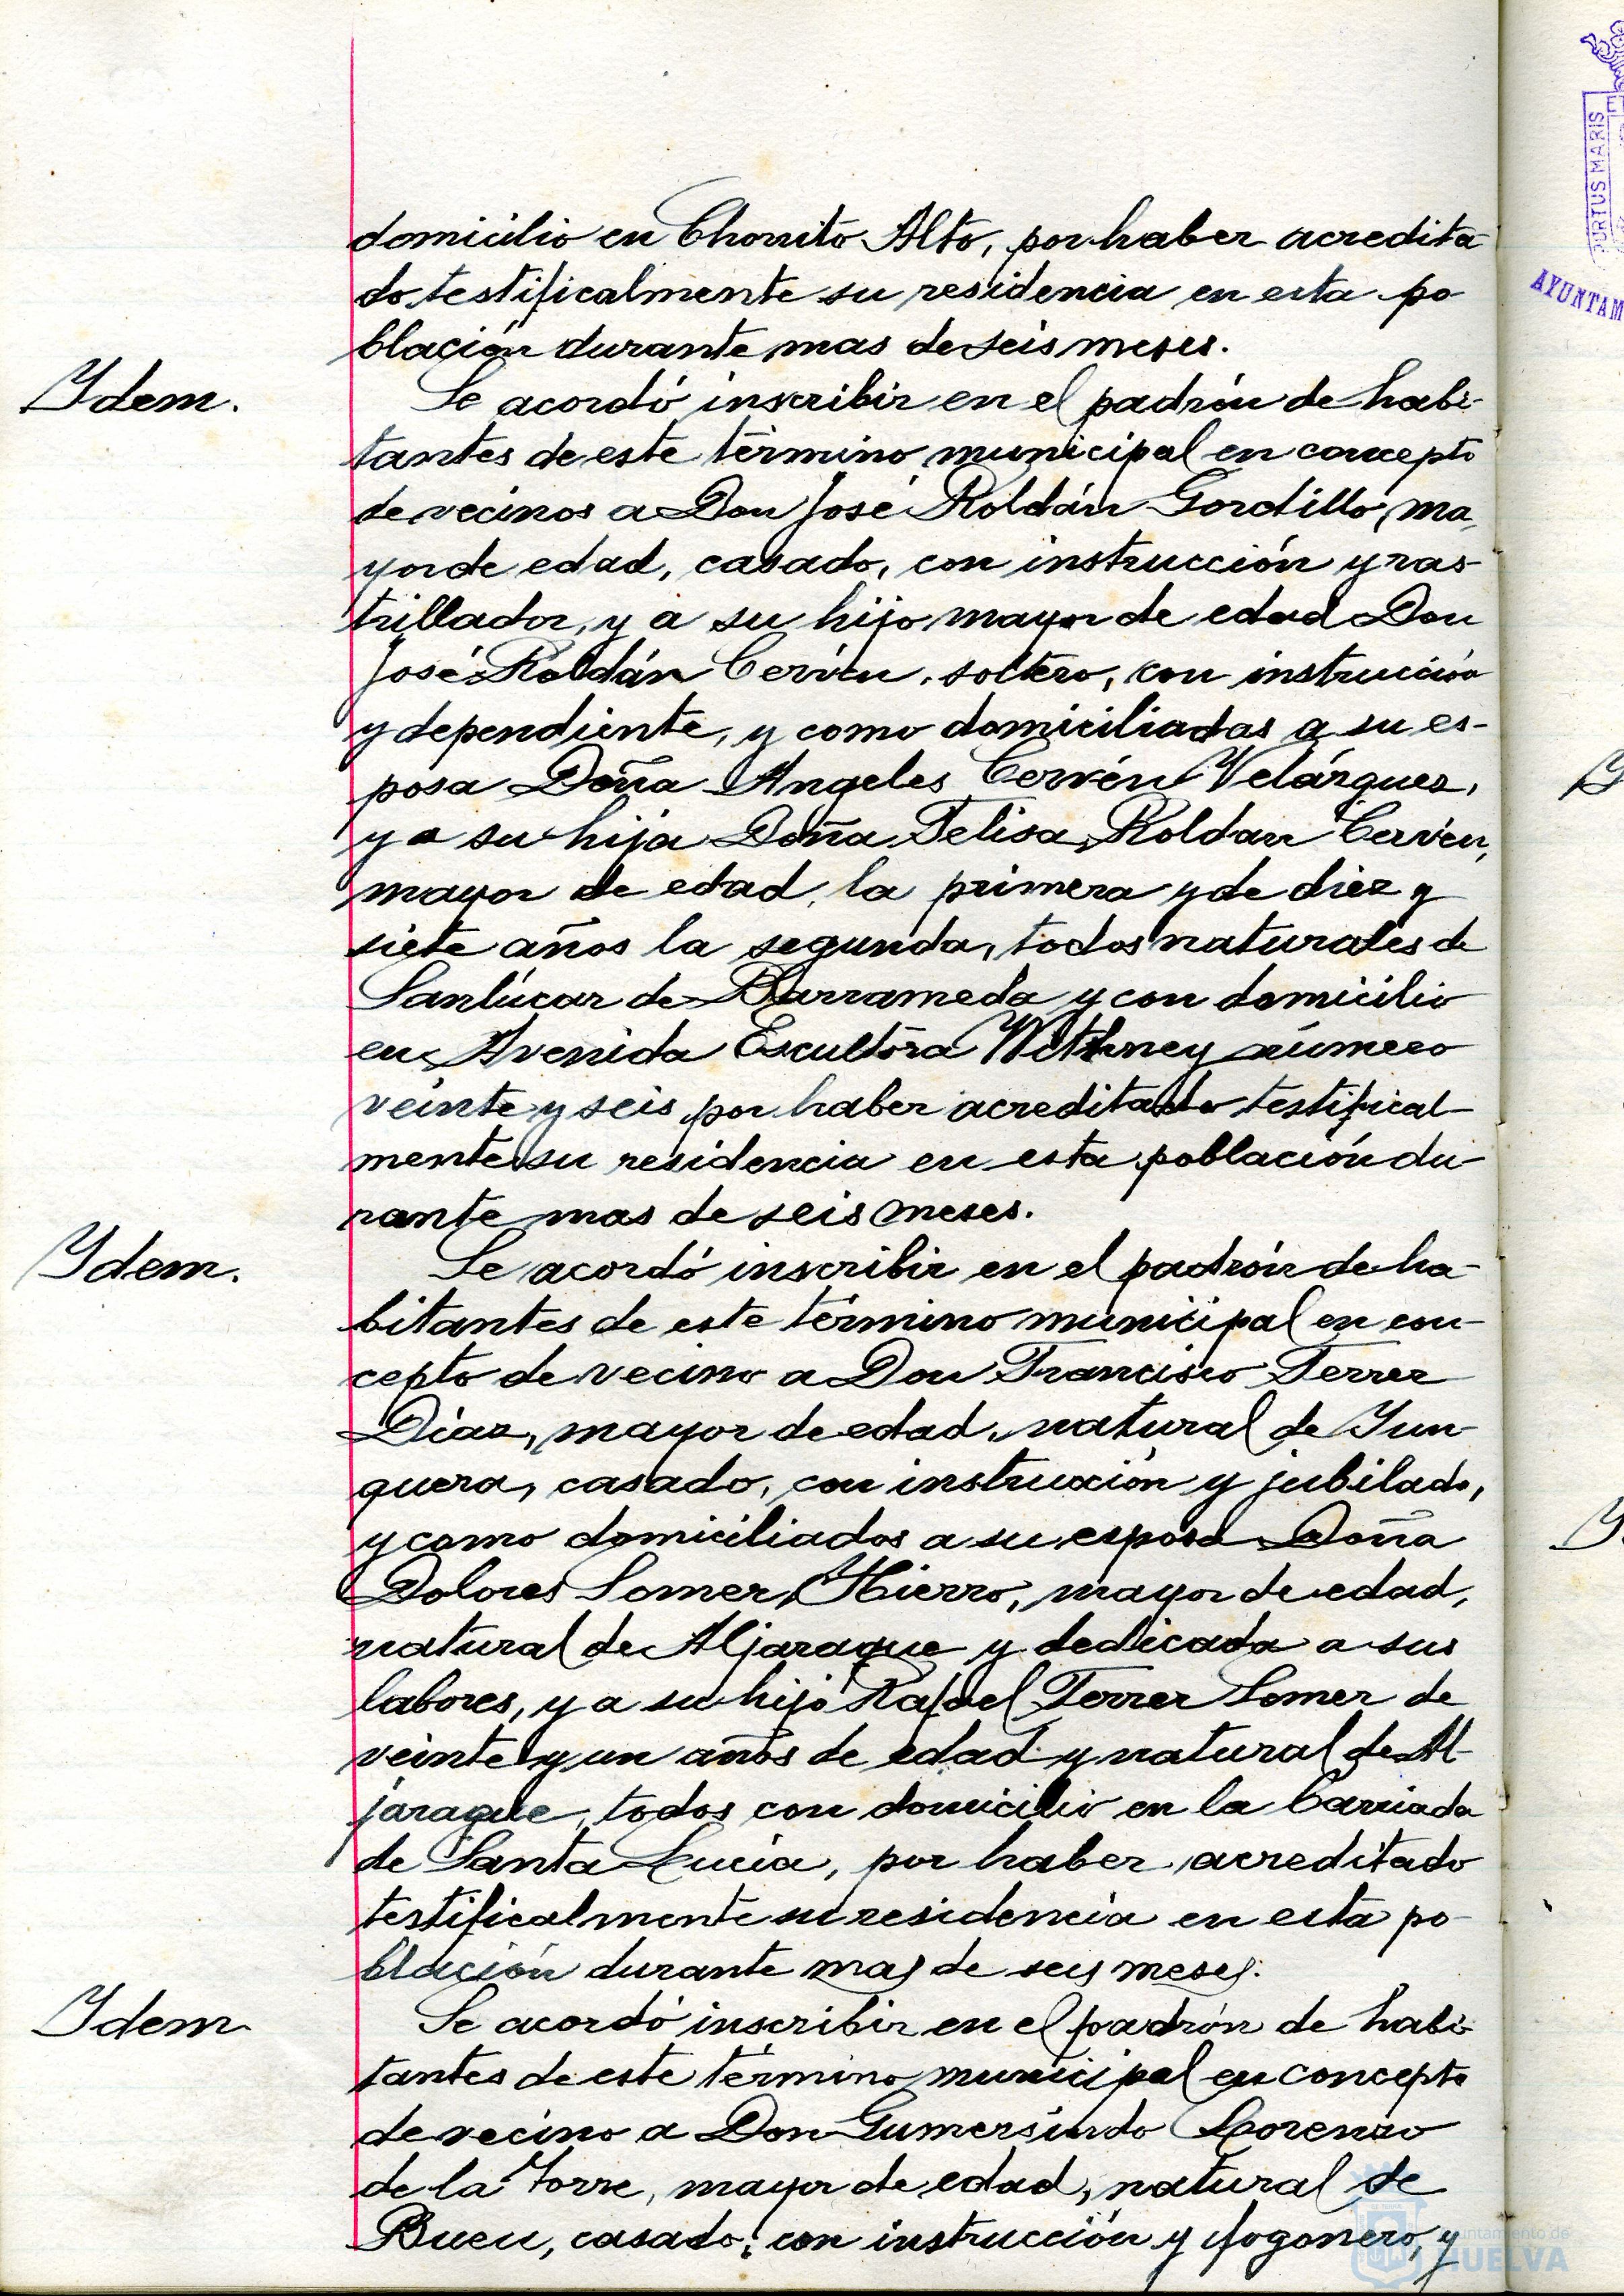 domicilio en Chorrito Alto, por haber acredita
do testificalmente su residencia en esta po
blación durante mas de seis meses.
Ydem.
Se acordó inscribir en el padrón de habi-
tantes de este término municipal en concepto
de vecinos a Don José Roldán Gordillo, ma
yor de edad, casado, con instrucción y ras-
trillador, y a su hijo mayor de edad Don
José Roldán Cervén, soltero, con instrucción
y dependiente, y como domiciliadas a su es-
posa Doña Angeles Cervén Velázquez,
y a su hija Doña Felisa Roldan Cervén,
mayor de edad, la primera y de diez y
siete años la segunda, todos naturales de
Sanlúcar de Barrameda y con domicilio
en Avenida Escultora número
veinte y seis, por haber acreditado testifical-
mente su residencia en esta población du-
rante mas de seis meses.
Ydem.
Se acordó inscribir en el padrón de ha-
bitantes de este término municipal en con-
cepto de vecino a Don Francisco Ferrer
Diaz, mayor de edad, natural de Yun-
quera, casado, con instrucción y jubilado,
y como domiciliados a su esposa Doña
Dolores Somer Hierro, mayor de edad,
natural de Aljaraque y dedicada a sus
labores, y a su hijo Rafael Ferrer Somer de
veinte y un años de edad y natural de Al-
jaraque, todos con domicilio en la barriada
de Santa Lucía, por haber acreditado
testificalmente su residencia en esta po-
blación durante mas de seis meses.
Ydem
Se acordó inscribir en el padrón de habi-
tantes de este término municipal en concepto
de vecino a Don Gumersindo Lorenzo
de la Torre, mayor de edad, natural de
Bueu, casado, con instrucción y fogonero, y
PORTUS MARIS
AYUNTAM
Ayuntamiento de
HUELVA